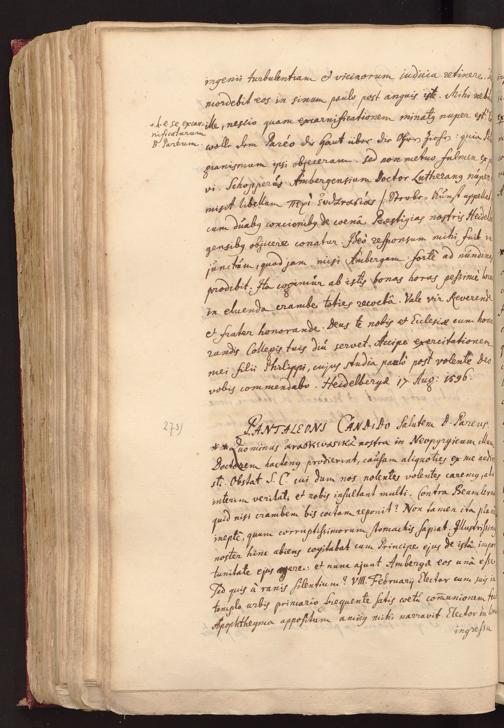 ingenii turbulentiam et vicinorum iudicia retinere.
mordebit eos in sinum paulo post anguis iste. Mihi
ille, nescio quam excarnificationem minatq nuper est
+ i.e. se excar-
nificaturum
D. Pareum.
wolle dem Paréo die Haut über die Ohren : quia
gianismum ipsi objeceram. Sed non metuo fulmen ex
vi. Schopperus Ambergensium Doctor Lutheranq nuper
misit libellum περὶ
cum duabq concionibq de coena Praestigias nostris Heidel
gensibq objicere conatur. Ideo responsum mihi fuit in
junctum, quod jam nisi Ambergam forte ad nundinas
prodibit. Ita cogimur ab istis bonas horas pessime
in eluenda crambe toties recocta. Vale vir Reverende
et frater honorande. Deus te nobis et Ecclesiae cum hono
randis Collegis tuis diu servet. Accipe exercitationem
mei filii Philippi, cujus studia paulo post volente Deo
vobis commendabo. Heidelbergae 17 Aug. 1596.
273)
PANTALEONI CANDIDO Salutem D. Pareus
** Quominus nostra in Neopyrgicum
Doctorem hactenq prodierint, causam aliquoties ex me audi
sti. Obstat S. C. cui dum nos nolentes volentes caremq,
interim veritati, et nobis insultant multi. Contra Beamlerum
quid nisi crambem bis coctam reponit? Non tamen ita
inepte, quam corruptissimorum stomachis sapiat. Illustrissimq
noster hinc abiens cogitabat cum Principe ejus de ista
tunitate ejus agere: et nunc ajunt Ambergae eos una esse
Sed quis à ranis silentium? VIII. Februarij Elector cum suis in
templo urbis primario frequente satis coetu communionem
Apophthegma appositum amicq mihi narravit. Elector in
ingressu